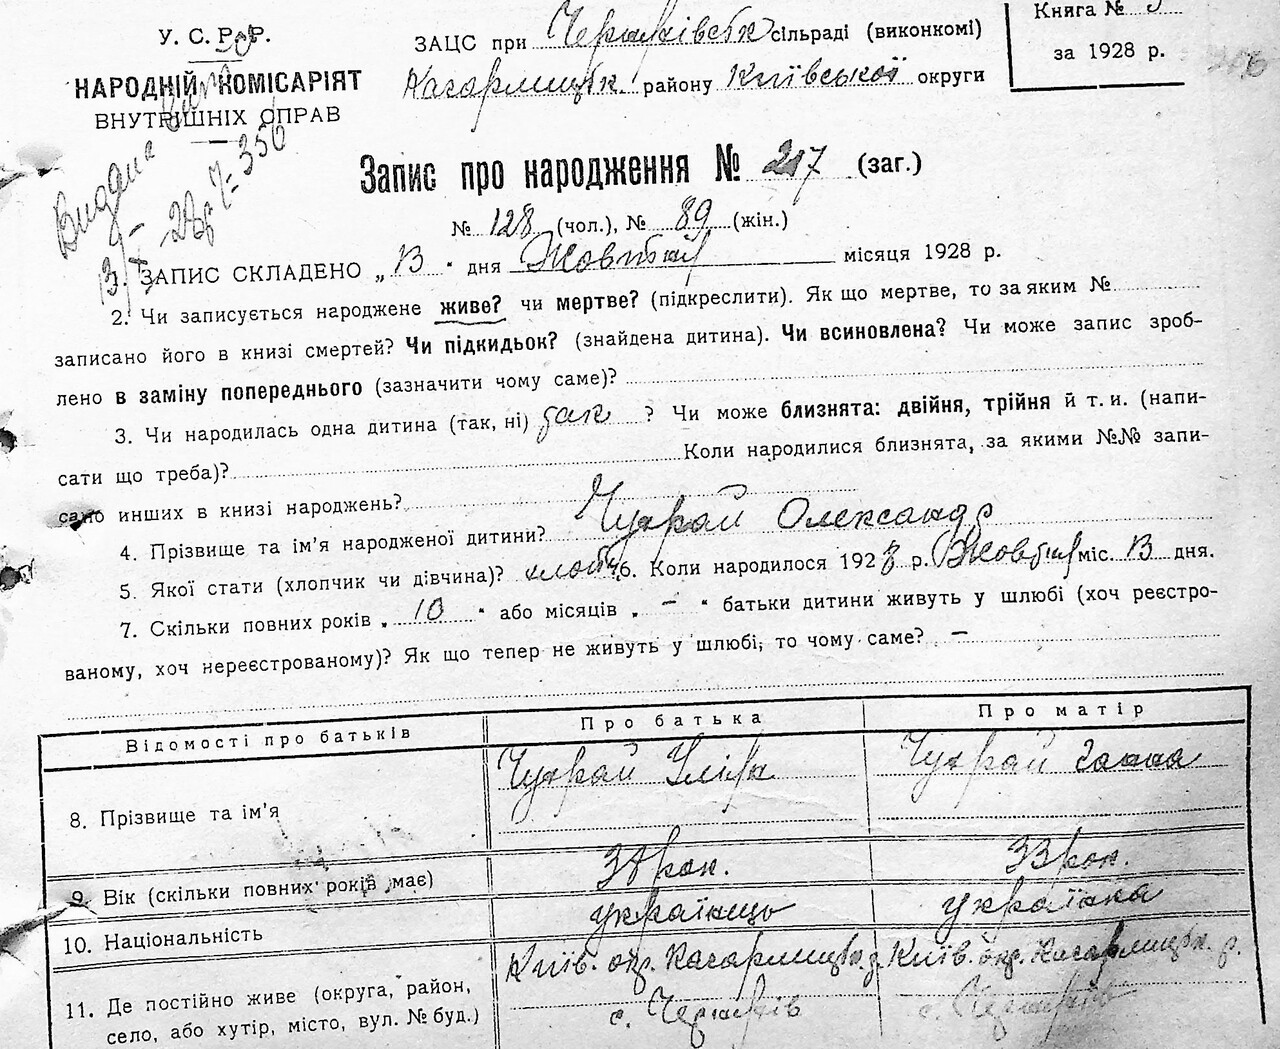 У. С. Р. Р.
НАРОДНІЙ КОМІСАРІЯТ
ВНУТРІШНІХ СПРАВ
ЗАЦС при сільраді (виконкомі)
Кагарлицьк. району Київської округи
Книга №
за 1928 р.
Видана
Запис про народження № 217 (заг.)
№ 128 (чол.), № 89 (жін.)
1. ЗАПИС СКЛАДЕНО „13“ дня Жовтня місяця 1928 р.
2. Чи записується народжене живе? чи мертве? (підкреслити). Як що мертве, то за яким №
записано його в книзі смертей? Чи підкидьок? (знайдена дитина). Чи всиновлена? Чи може запис зроб-
лено в заміну попереднього (зазначити чому саме)?
3. Чи народилась одна дитина (так, ні) так ? Чи може близнята: двійня, трійня й т. и. (напи-
сати що треба)? Коли народилися близнята, за якими №№ запи-
сано инших в книзі народжень?
4. Прізвище та ім’я народженої дитини? Чухрай Олександр
5. Якої стати (хлопчик чи дівчина)? хлопч. 6. Коли народилося 1928 р. Жовтня міс. 13 дня.
7. Скільки повних років „10“ або місяців „—“ батьки дитини живуть у шлюбі (хоч реєстро-
ваному, хоч нереєстрованому)? Як що тепер не живуть у шлюбі, то чому саме? —
Відомості про батьків Про батька Про матір
8. Прізвище та ім’я Чухрай Чухрай Ганна
9. Вік (скільки повних років має) рок. 33 рок.
10. Національність українець українка
11. Де постійно живе (округа, район, Київ. окр. Кагарлицьк. р. Київ. окр. Кагарлицьк. р.
село, або хутір, місто, вул. № буд.) с. с.